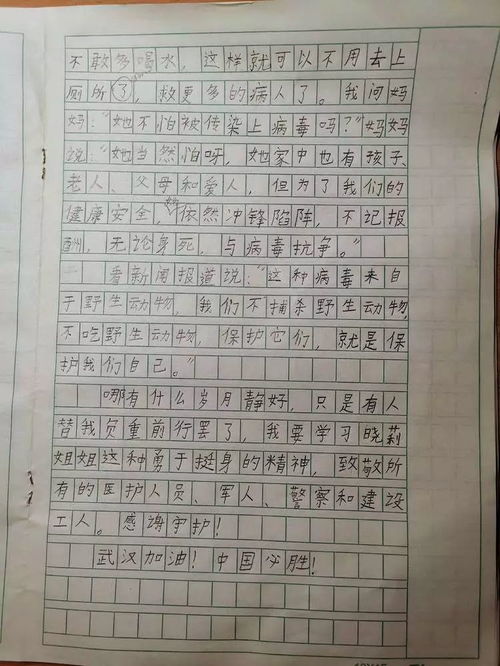 不敢多喝水，这样就可以不用去上
厕所了，救更多的病人了。我问妈
妈："她不怕被传染上病毒吗？"妈妈
说："她当然怕呀，她家中也有孩子、
老人、父母和爱人，但为了我们的
健康安全，她依然冲锋陷阵，不记报
酬，无论身死，与病毒抗争。"
看新闻报道说："这种病毒来自
于野生动物，我们不捕杀野生动物，
不吃野生动物，保护它们，就是保
护我们自己。"
哪有什么岁月静好，只是有人
替我负重前行罢了，我要学习晓莉
姐姐这种勇于挺身的精神，致敬所
有的医护人员、军人、警察和建设
工人。感谢守护！
武汉加油！中国必胜！